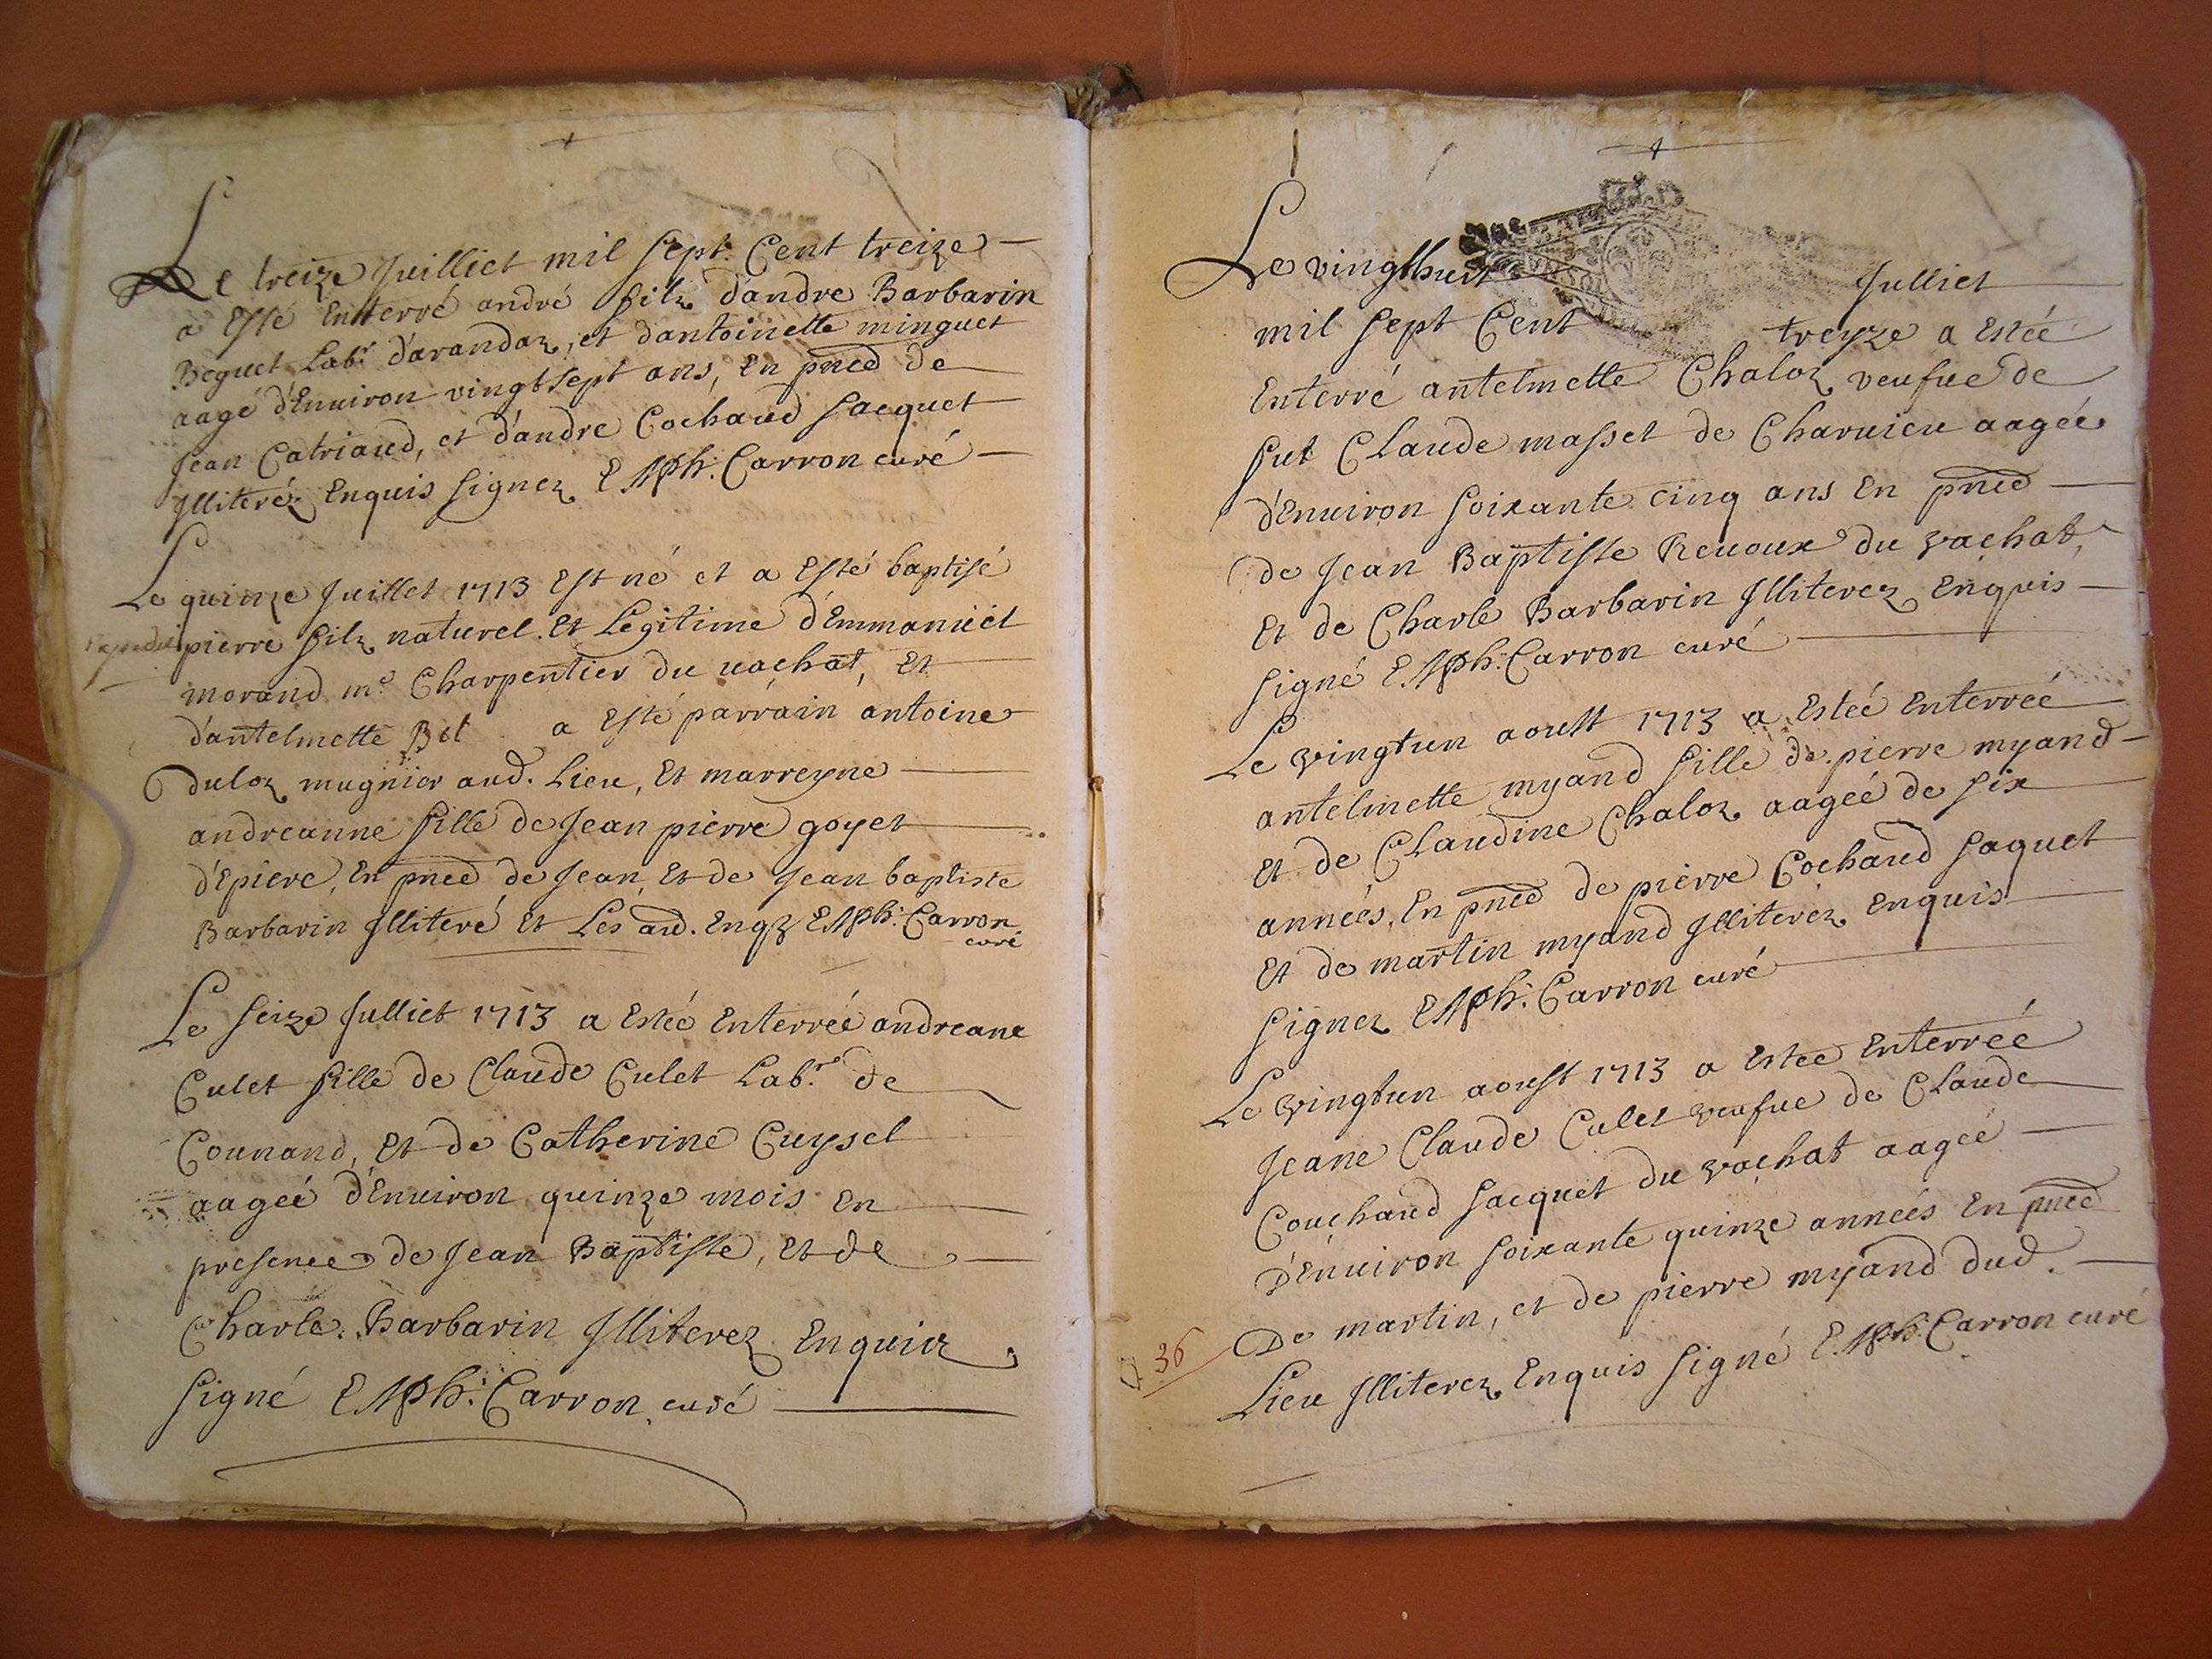 Le treize Juilliet mil sept Cent treize
a Esté Enterré andré filz d'andre Barbarin
Beguet Labr. d'arandaz, et dantoinette minguet
aagé d'Enuiron vingtsept ans, En pnce de
Jean Catriaud, et d'andre Cochaud Jacquet
Illiteréz Enquis signez E Mph. Carron curé
Le quinze Juillet 1713 Est né et a Esté baptisé
pierre filz naturel Et Legitime d'Emmanüel
morand me Charpentier du uachat, Et
d'antelmette Bot a Esté parrain antoine
duloz mugnier aud. Lieu, Et marreyne
andreanne fille de Jean pierre goyet
d'Epiere, En pnce de Jean, Et de Jean baptiste
Barbarin Illiteré Et Les aud. Enqz E Mph. Carron
curé
Le seize Julliet 1713 a Estéé Enterréé andreane
Culet fille de Claude Culet Labr. de
Counand, Et de Catherine Cuysel
aagéé d'Enuiron quinze mois En
presence de Jean Baptiste, Et de
Charle Barbarin Illiterez Enquiz
signé E Mph. Carron curé
Le vingthuit Julliet
mil sept Cent treyze a Estéé
Enterré antelmette Chaloz veufue de
fut CLaude masset de Charuieu aagéé
d'Enuiron soixante cinq ans En pnce
de Jean Baptiste Reuoux du vachat,
Et de Charle Barbarin Illiterez Enquis
signé E. Mph. Carron curé
Le vingtun aoust 1713 a Estéé Enterréé
antelmette myand fille de pierre myand
Et de CLaudine Chaloz aagéé de six
annéés, En pnce de pierre Cochaud Jaquet
Et de martin myand Illiteréz Enquis
signez E Mph. Carron curé
Le vingtun aoust 1713 a Estéé Enterréé
Jeane Claude Culet veufue de CLaude
Couchaud Jacquet du vachat aagéé
d'Enuiron soixante quinze annéés En pnce
De martin, et de pierre myand dud.
36
Lieu Illiterez Enquis signé E. Mph. Carron curé